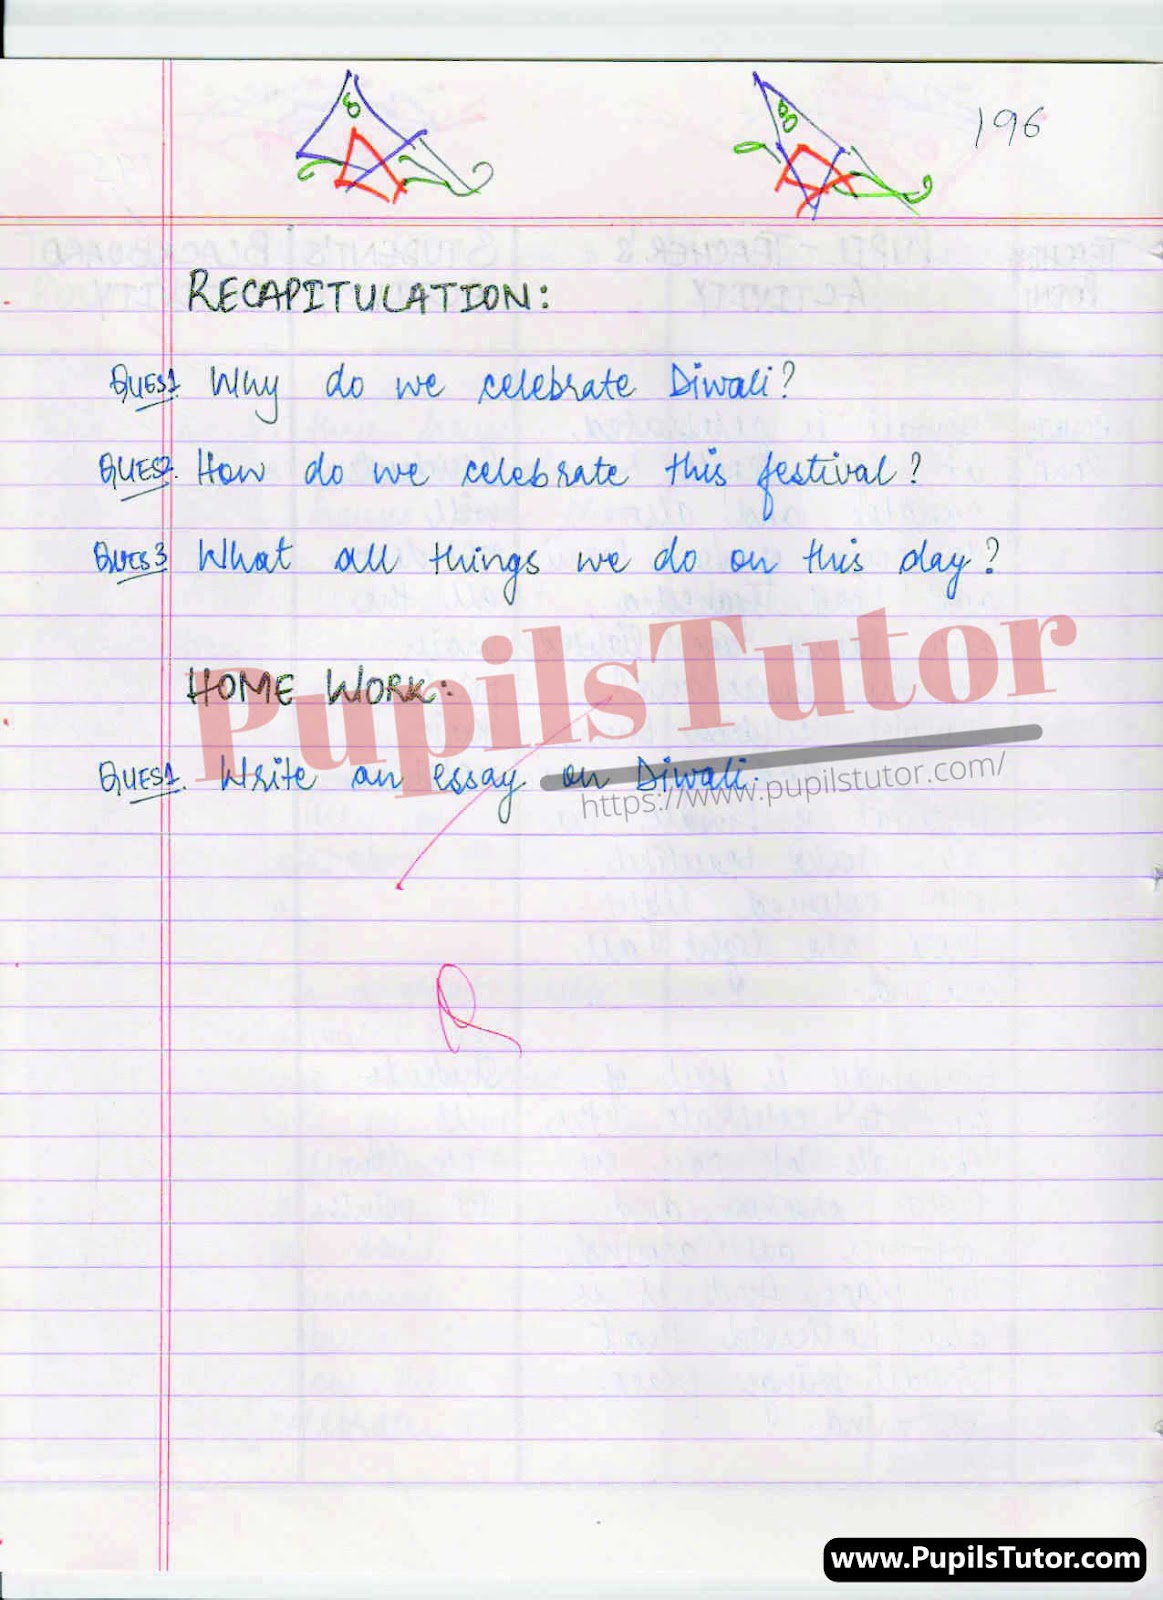 196
RECAPITULATION:
QUES1. Why do we celebrate Diwali?
QUES2. How do we celebrate this festival?
QUES3 What all things we do on this day?
HOME WORK:
QUES1. Write an essay on Diwali.
PupilsTutor
https://www.pupilstutor.com/
www.PupilsTutor.com